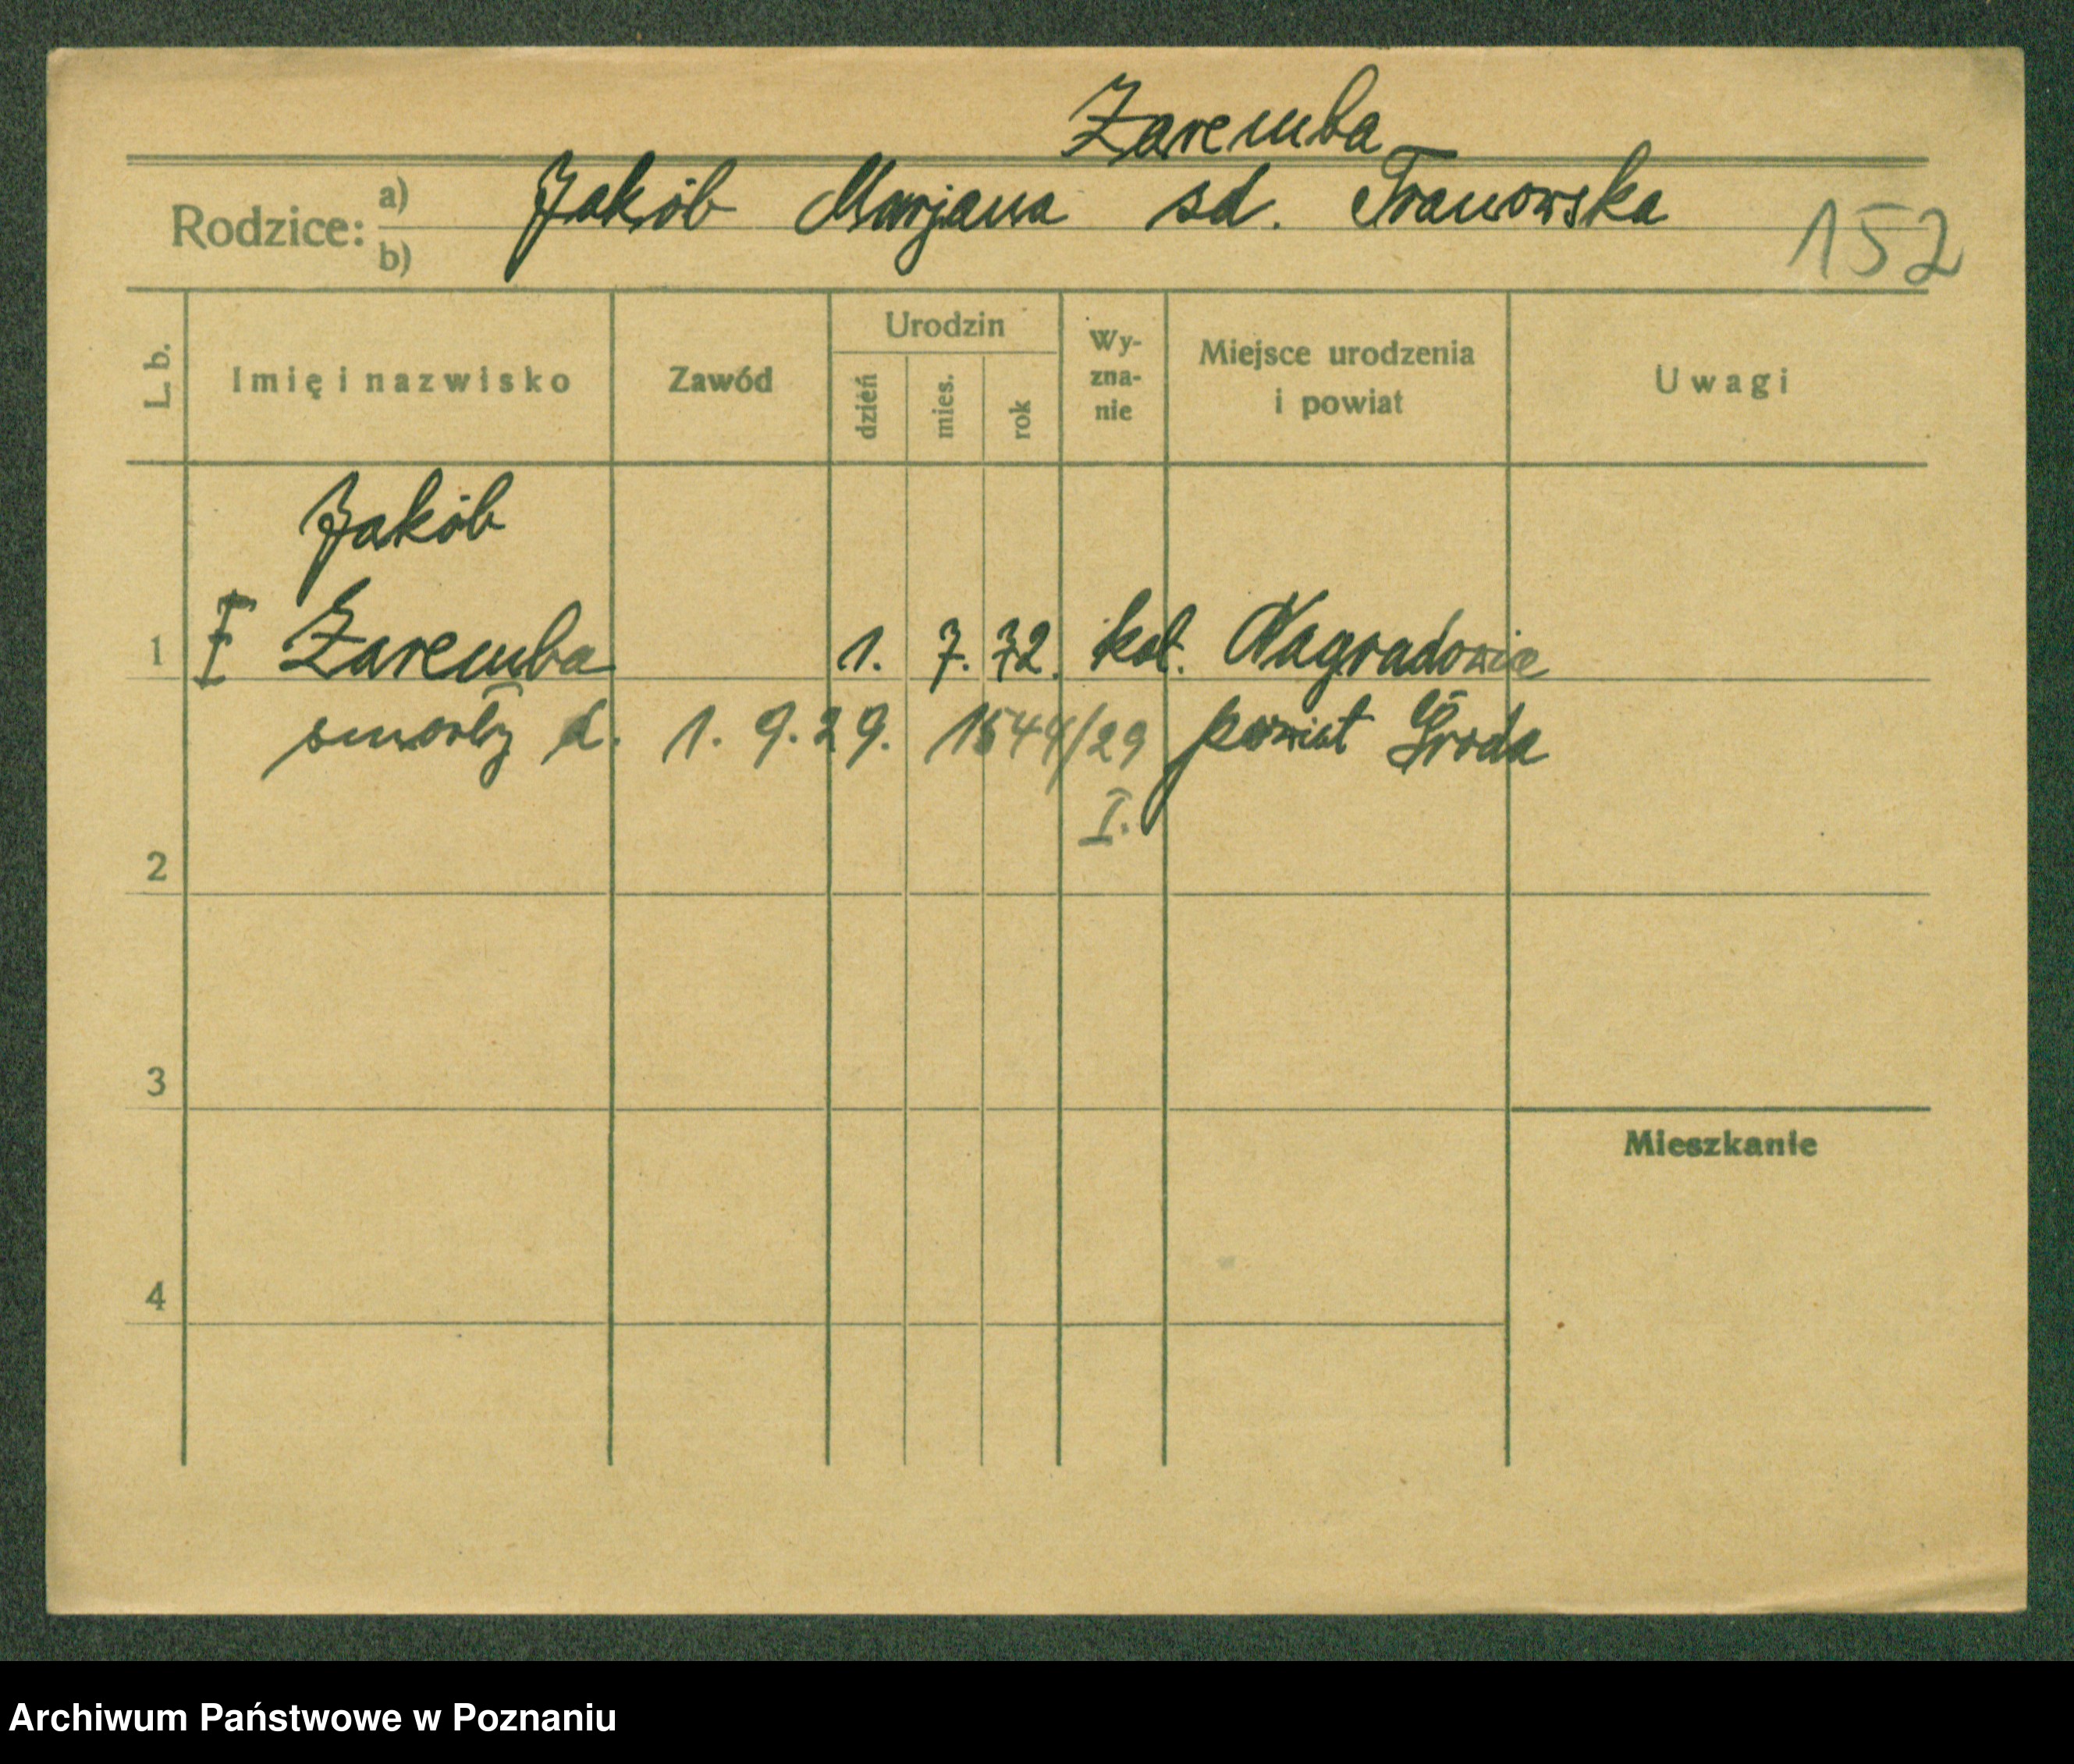 Zaremba
Rodzice: a) Jakób Marjana sd. Franowska
b)
152
L. b. Imię i nazwisko Zawód Urodzin dzień mies. rok Wy-zna-nie Miejsce urodzenia i powiat Uwagi
Jakób
1 Zaremba 1. 7. 72. kat. Nagradowice
smarły d. 1. 9. 29. 1544/29 powiat Środa
I.
2
3
Mieszkanie
4
Archiwum Państwowe w Poznaniu